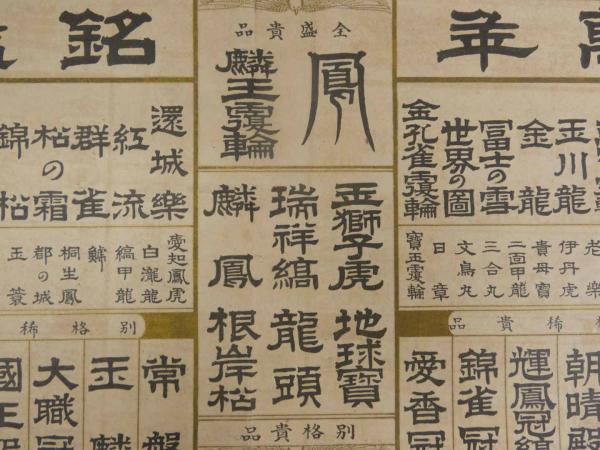 年
銘
全盛貴品
鳳
麟王覆輪
玉獅子虎
瑞祥縞
麟鳳
地球寶
龍頭
根岸枩
別格貴品
玉川龍
金龍
冨士の雪
世界の圖
金孔雀覆輪
老樂
伊丹虎
貴母寶
二面甲龍
三合丸
文鳥丸
日章
寶玉覆輪
稀貴品
朝晴殿
輝鳳冠縞
錦雀冠
愛香冠
還城樂
紅流
群雀
枩の霜
錦枩
愛知鳳虎
白瀧龍
縞甲龍
鯱
桐生鳳
都の城
玉簑
別格稀
常盤
玉麟
大職冠
國王